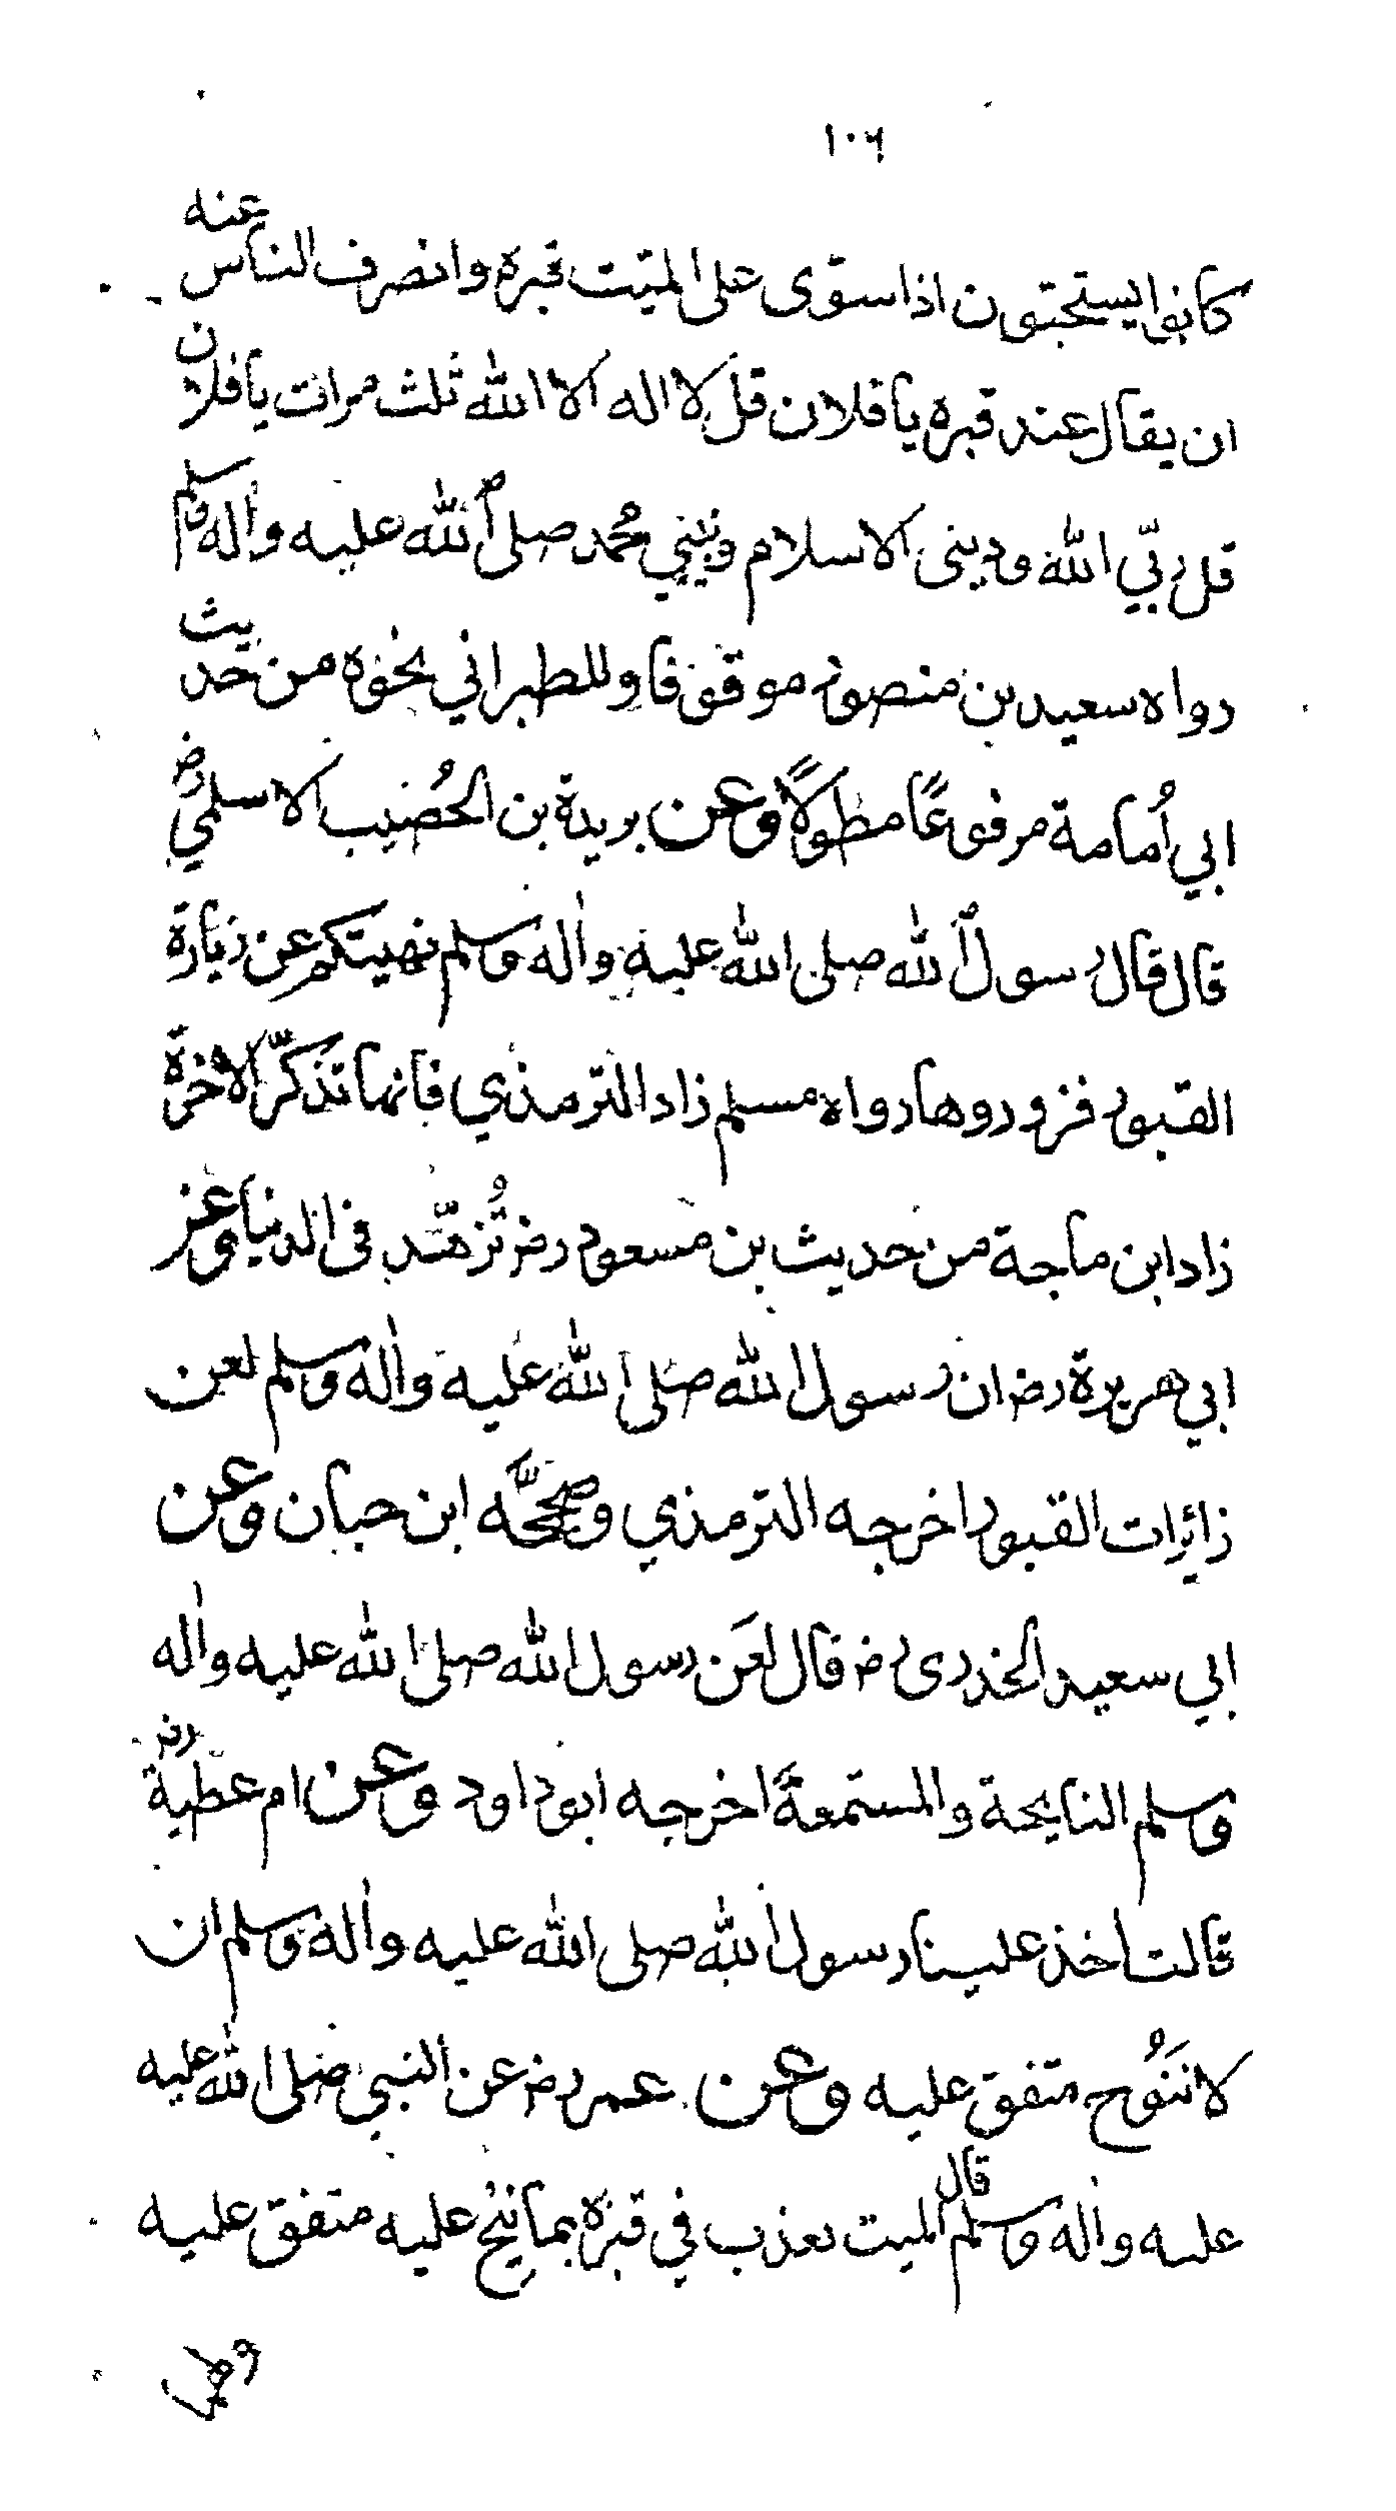 ١٠٦
كانوا يستحبّون اذا سوّى على الميّت قبره وانصرف الناس عنه
ان يقال عند قبره يا فلان قل لا اله الا الله ثلث مرات يا فلان
قل ربّي الله وديني الاسلام ونبيّي محُمد صلى الله عليه واٰله وسلم
رواه سعيد بن منصور موقوفا وللطبراني نحوه من حديث
ابي اُمامة مرفوعًا مطولًا وعن بريدة بن الحُصَيب الاسلميّ رض
قال قال رسول الله صلى الله عليه واٰله وسلم نهيتكم عن زيارة
القبور فزوروها رواه مسلم زاد الترمذي فانها تذكّر الاخرة
زاد ابن ماجة من حديث بن مسعود رض تُزهّد فى الدنيا وعن
ابي هريرة رض ان رسول الله صلى الله عليه واٰله وسلم لعن
زائرات القبور اخرجه الترمذي وصحَّحه ابن حبان وعن
ابي سعيد الخدرى رض قال لعَن رسول الله صلى الله عليه واٰله
وسلم النايحة والمستمعة اخرجه ابوداود وعن ام عطيّة رض
قالت اخذ علينا رسول الله صلى الله عليه واٰله وسلم ان
لا ننَوُح متفق عليه وعن عمر رض عن النبي صلى الله عليه
عليه واٰله وسلم قال الميت يعذب في قبره بما نيح عليه متفق عليه